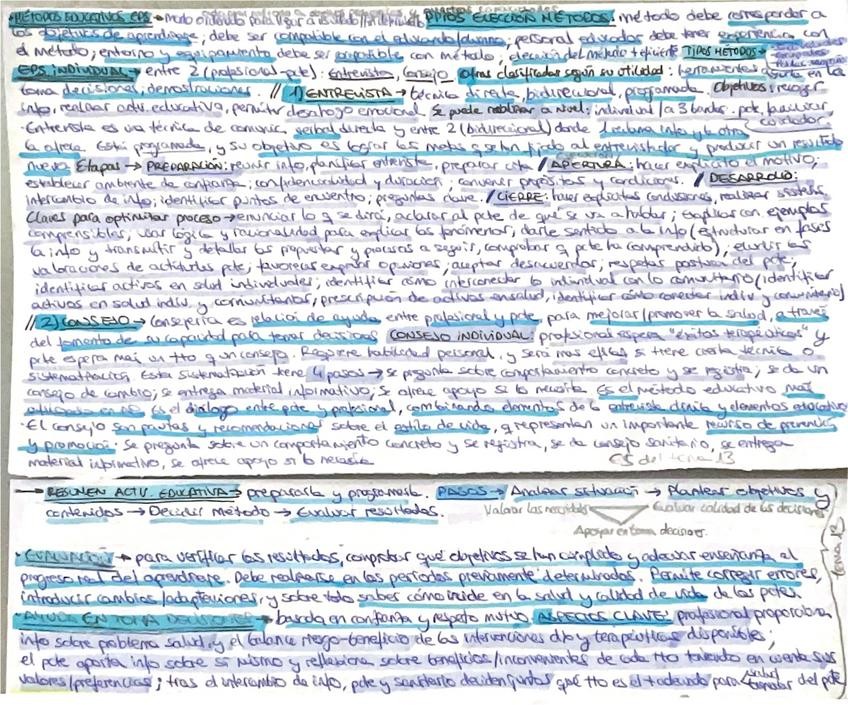 ·MÉTODOS EDUCATIVOS EPS → Modo ordenado para llegar a PPIOS ELECCIÓN MÉTODOS: método debe corresponder a
los objetivos de aprendizaje; debe ser compatible con el educando/alumno; personal educador debe tener experiencia con
el método; entorno y equipamiento debe ser compatible con método; elección del método + eficiente TIPOS MÉTODOS →
EPS INDIVIDUAL → entre 2 (profesional-pcte): entrevista, consejo Otras clasificados según su utilidad: herramientas ayuda en la
toma decisiones, demostraciones // 1) ENTREVISTA → técnica directa, bidireccional, programada. Objetivos: recoger
info, realizar activ. educativa, permitir desahogo emocional. Se puede realizar a nivel: individual / a 3 bandas - pcte, familiar, cuidador
·Entrevista es una técnica de comunic. verbal directa y entre 2 (bidireccional) donde 1 reclama info y la otra
la ofrece. Está programada, y su objetivo es lograr las metas q se han fijado al entrevistador y producir un resultado
nuevo Etapas → PREPARACIÓN: reunir info, planificar entrevista, preparar cita / APERTURA: hacer explícito el motivo;
establecer ambiente de confianza; confidencialidad y duración; convenir propósitos y condiciones. / DESARROLLO:
intercambio de info; identificar puntos de encuentro; preguntas clave. / CIERRE: hacer explícitas conclusiones, realizar síntesis.
Claves para optimizar proceso → enunciar lo q se dirá, aclarar al pcte de qué se va a hablar; explicar con ejemplos
comprensibles, usar lógica y racionalidad para explicar los fenómenos, darle sentido a la info (estructurar en fases
la info y transmitir y detallar las propuestas y procesos a seguir, comprobar q pcte ha comprendido), elucidar las
valoraciones de actitudes pcte; favorecer expresar opiniones, aceptar desacuerdos; respetar postura del pcte;
identificar activos en salud individuales; identificar cómo interconectar lo individual con lo comunitario (identificar
activos en salud indiv. y comunitarios, prescripción de activos en salud, identificar cómo conectar indiv y comunitario)
// 2) CONSEJO → Consejería es relación de ayuda entre profesional y pcte, para mejorar/promover la salud, a través
del fomento de su capacidad para tomar decisiones CONSEJO INDIVIDUAL: profesional espera "éxitos terapéuticos" y
pcte espera más un tto q un consejo. Requiere habilidad personal, y será más eficaz si tiene cierta técnica o
sistematización. Esta sistematización tiene 4 pasos → se pregunta sobre comportamiento concreto y se registra; se da un
consejo de cambio; se entrega material informativo; se ofrece apoyo si lo necesita. Es el método educativo más
utilizado en AP. Es el diálogo entre pcte y profesional, combinando elementos de la entrevista clínica y elementos educativos
·El consejo son pautas y recomendaciones sobre el estilo de vida, q representan un importante recurso de prevención
y promoción. Se pregunta sobre un comportamiento concreto y se registra, se da consejo sanitario, se entrega
material informativo, se ofrece apoyo si lo necesita ES del tema 13
→ RESUMEN ACTIV. EDUCATIVA → prepararla y programarla. PASOS → Analizar situación → Plantear objetivos y
contenidos → Decidir método → Evaluar resultados. Valorar las necesidades Evaluar calidad de las decisiones
Apoyar en toma decisiones.
·EVALUACIÓN → para verificar los resultados, comprobar qué objetivos se han cumplido y adecuar enseñanza al
progreso real del aprendizaje. Debe realizarse en los periodos previamente determinados. Permite corregir errores,
introducir cambios/adaptaciones, y sobre todo saber cómo incide en la salud y calidad de vida de los pctes.
·AYUDA EN TOMA DECISIONES → basada en confianza y respeto mutuo. ASPECTOS CLAVE: profesional proporciona
info sobre problema salud, y el balance riesgo-beneficio de las intervenciones dx y terapéuticas disponibles;
el pcte aporta info sobre sí mismo y reflexiona sobre beneficios/inconvenientes de cada tto teniendo en cuenta sus
valores/preferencias; tras el intercambio de info, pcte y sanitario deciden juntos qué tto es el + adecuado para salud/bienestar del pcte
tema 13